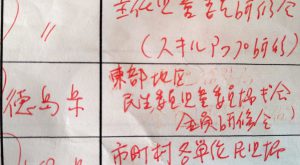 〃 主任児童委員研修会
(スキルアップ研修)
徳島県 東部地区
民生委員児童委員協議会
全員研修会
市町村各単位民児協